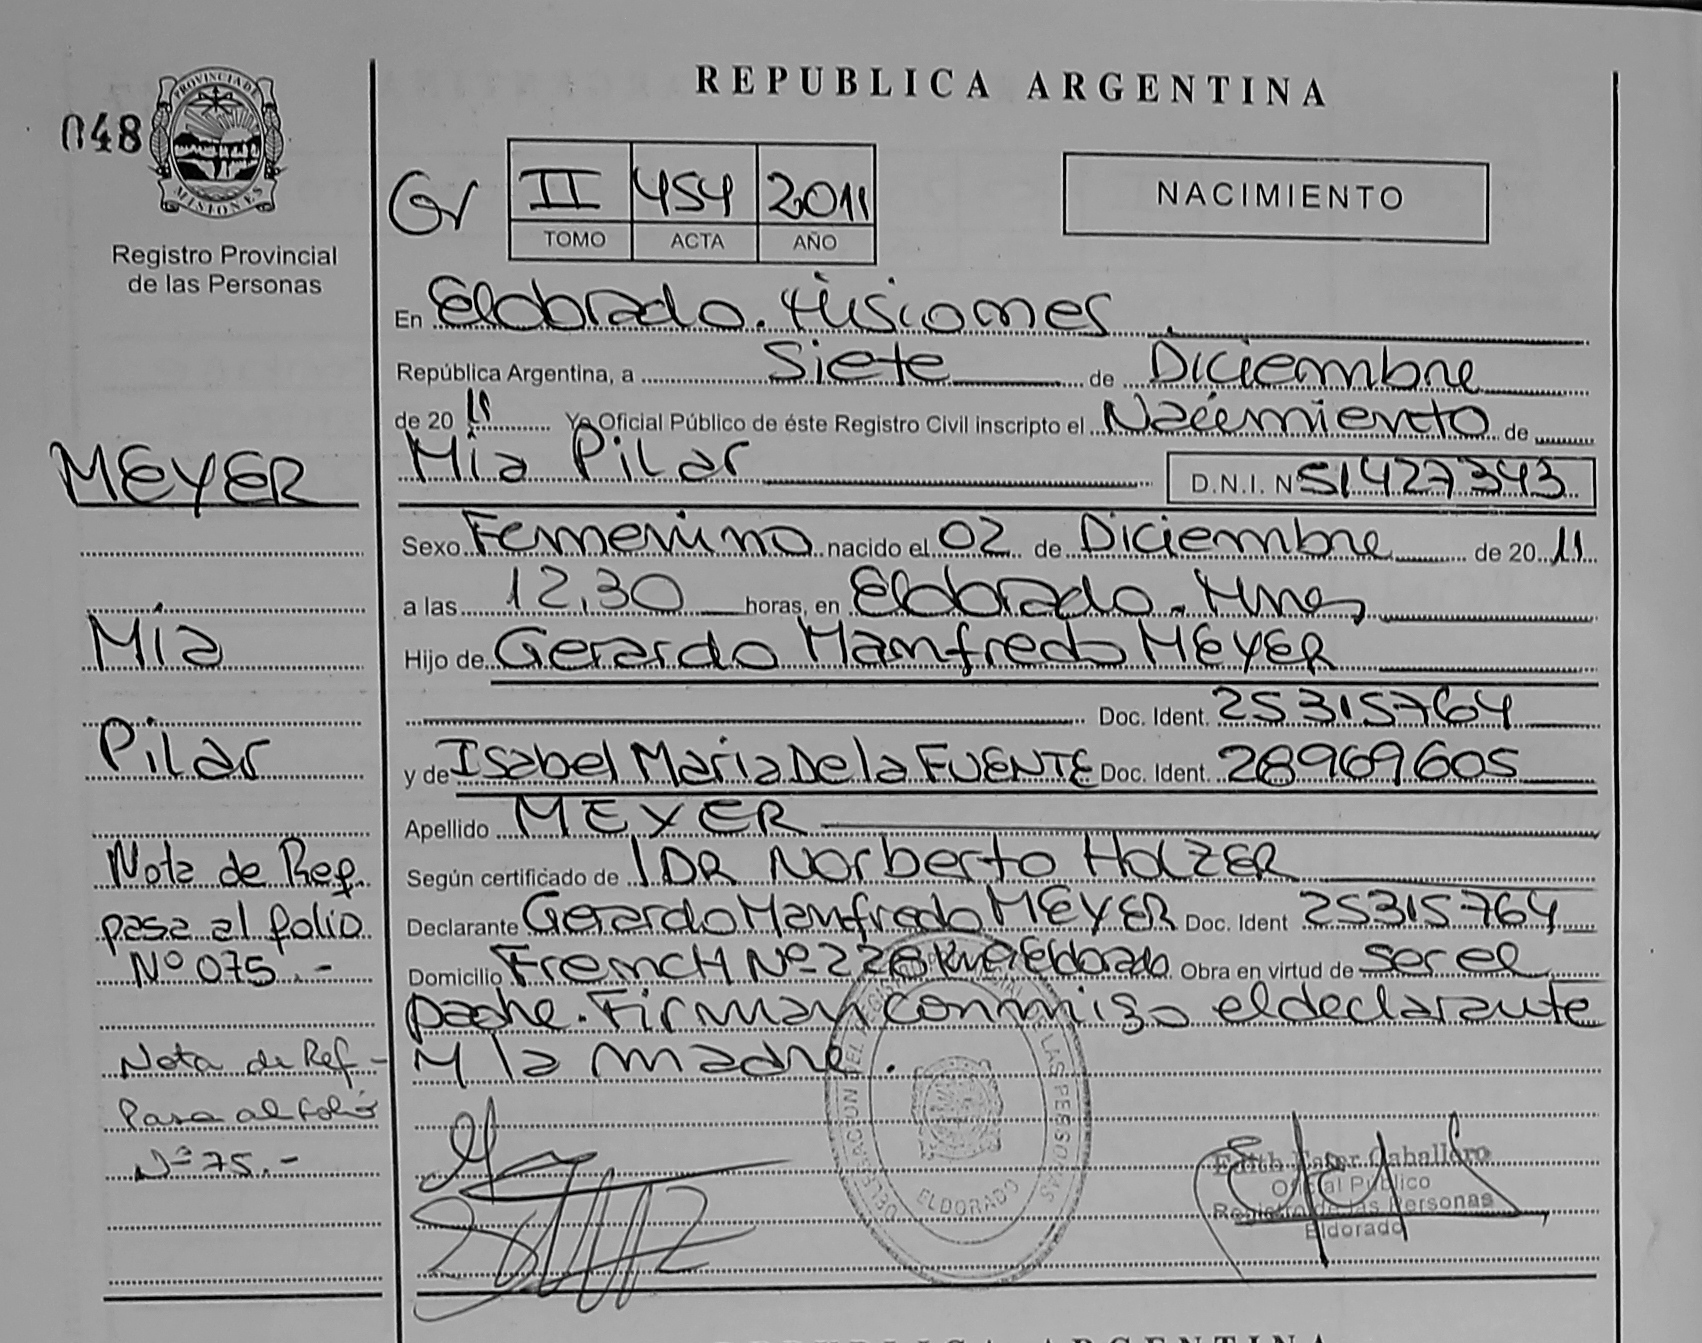 REPUBLICA ARGENTINA
048
PROVINCIA DE
MISIONES
Registro Provincial
de las Personas
Gv
II 454 2011
TOMO ACTA AÑO
NACIMIENTO
En Eldorado. Misiones
República Argentina, a Siete de Diciembre
de 2011 Yo Oficial Público de éste Registro Civil inscripto el Nacimiento de
Mía Pilar D.N.I. Nº 51427343
Sexo Femenino nacido el 02 de Diciembre de 2011
a las 12,30 horas, en Eldorado. Mnes
Hijo de Gerardo Manfredo MEYER
Doc. Ident. 25315764
y de Isabel Maria De la FUENTE Doc. Ident. 28969605
Apellido MEYER
Según certificado de DR Norberto HOLZER
Declarante Gerardo Manfredo MEYER Doc. Ident 25315764
Domicilio FrencH Nº 228 Eldorado Obra en virtud de ser el
padre. Firman conmigo el declarante
y la madre.
MEYER
Mía
Pilar
Nota de Ref.
pasa al folio
Nº 075.-
Nota de Ref-
Pasa al folio
Nº 75.-
DELEGACION DEL REGISTRO LAS PERSONAS
ELDORADO
Edith Ester Caballero
Oficial Público
Registro de las Personas
Eldorado
REPUBLICA ARGENTINA